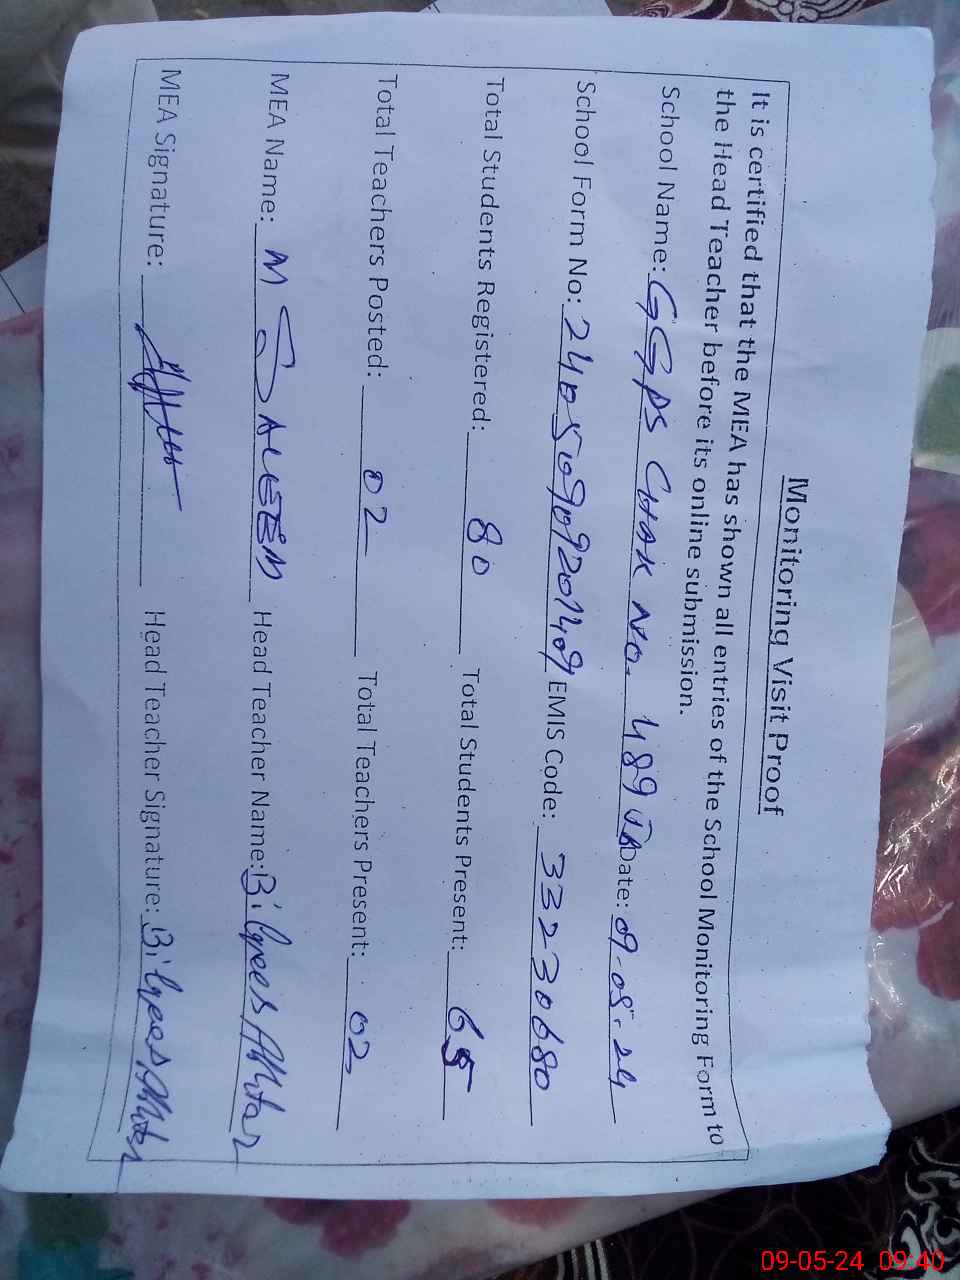 Monitoring Visit Proof
It is certified that the MEA has shown all entries of the School Monitoring Form to
the Head Teacher before its online submission.
School Name: GGPS CHAK NO. 489 JB Date: 09-05-24
School Form No: EMIS Code: 33230680
Total Students Registered: 80 Total Students Present: 65
Total Teachers Posted: 02 Total Teachers Present: 02
MEA Name: M SALEEM Head Teacher Name: Bilqees Akhtar
MEA Signature: Head Teacher Signature: Bilqees Akhtar
09-05-24 09:40